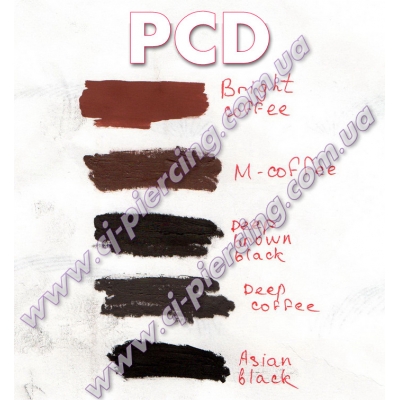 PCD
Bright
coffee
M-coffee
Deep
brown
black
Deep
coffee
Asian
black
www.cj-piercing.com.ua
www.cj-piercing.com.ua
www.cj-piercing.com.ua